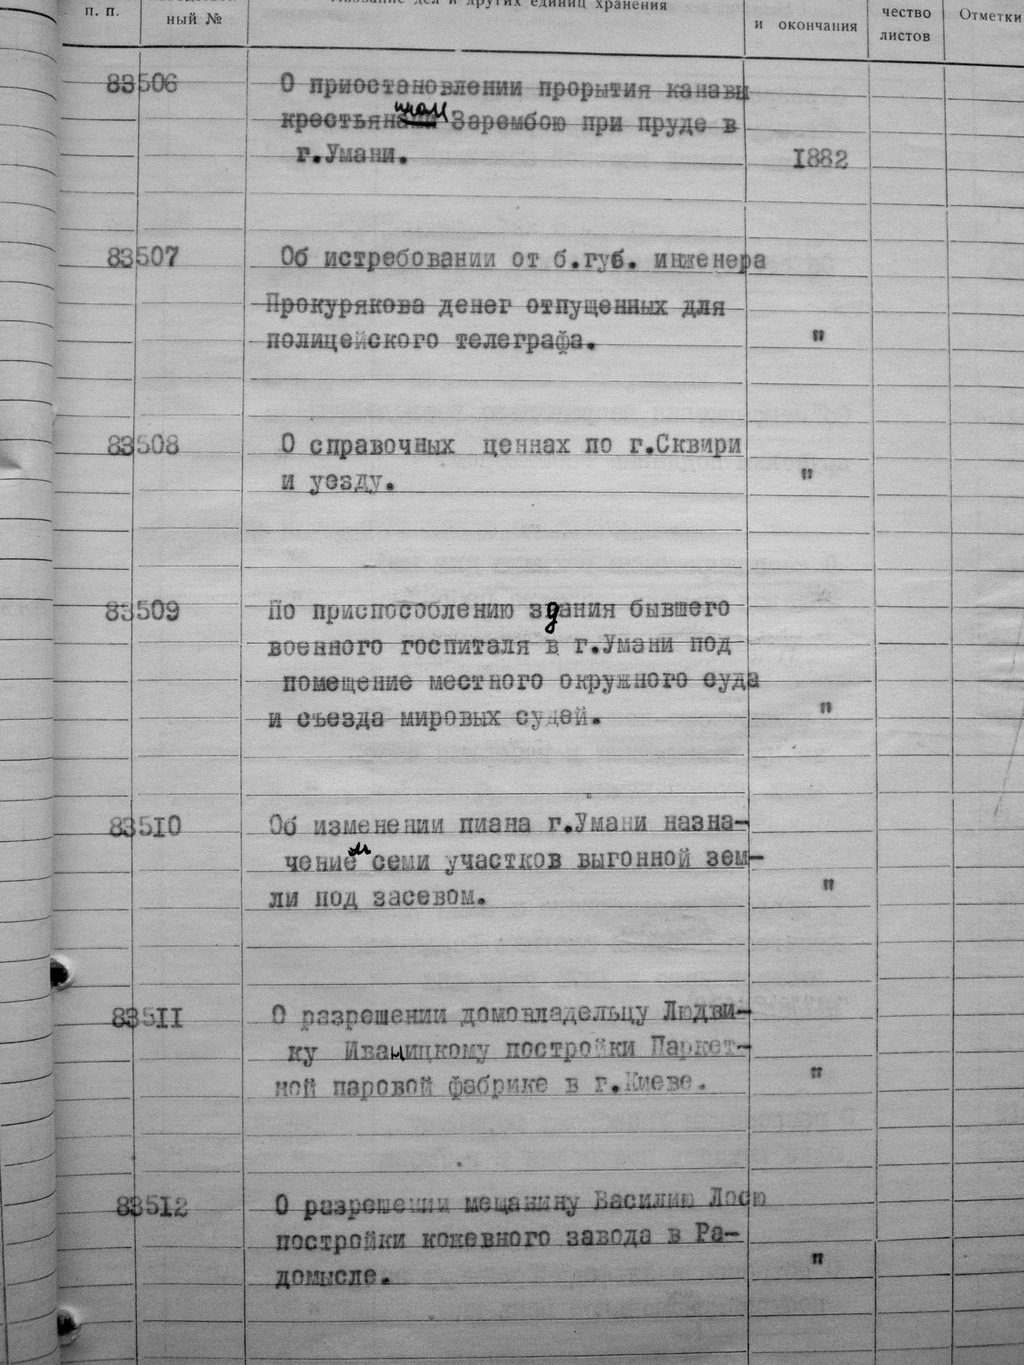 п. п.
ный №
Название дел и других единиц хранения
и окончания
чество
листов
Отметки
83506 О приостановлении прорытия канавы
крестьянином Зарембою при пруде в
г.Умани. 1882
83507 Об истребовании от б.губ. инженера
Прокурякова денег отпущенных для
полицейского телеграфа. "
83508 О справочных ценнах по г.Сквири
и уезду. "
83509 По приспособлению здания бывшего
военного госпиталя в г.Умани под
помещение местного окружного суда
и съезда мировых судей. "
83510 Об изменении пиана г.Умани назна-
чением семи участков выгонной зем-
ли под засевом. "
83511 О разрешении домовладельцу Людви-
ку Иваницкому постройки Паркет-
ной паровой фабрике в г.Киеве. "
83512 О разрешении мещанину Василию Лосю
постройки кожевного завода в Ра-
домысле. "